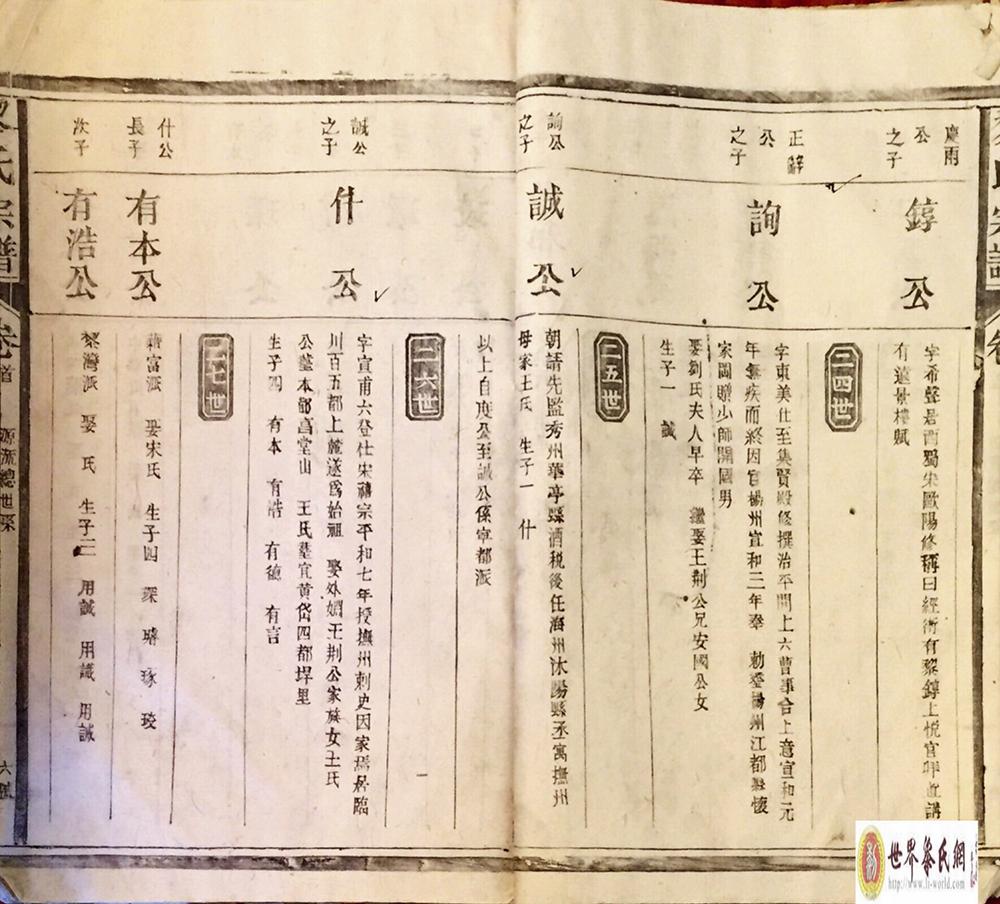 慶雨
公
之子
錞公
字希聲居西蜀宋歐陽修稱曰經術有黎錞上悅官呼直講
有遠景樓賦
二四世
正辭
公
之子
詢公
字東美仕至集賢殿修撰治平間上六曹事合上意宣和元
年無疾而終因官楊州宣和三年奉 勅塋楊州江都縣懷
家岡贈少師開國男
娶劉氏夫人早卒 繼娶王荆公兄安國公女
生子一 誠
二五世
詢公
之子
誠公
朝請先監秀州華亭縣酒稅後任海州沐陽縣丞寓撫州
母家王氏 生子一 什
以上自度公至誠公係寧都派
二六世
誠公
之子
什公
字宣甫六登仕宋禧宗平和七年授撫州刺史因家焉居臨
川百五都上麓遂爲始祖 娶外嫺王荆公家族女王氏
公塟本都昌堂山 王氏塟宜黄岱四都垾里
生子四 有本 有浩 有德 有言
二七世
什公
長子
有本公
藉富派 娶宋氏 生子四 琛 璿 琢 琰
次子
有浩公
黎灣派 娶 氏 生子三 用誠 用識 用誠
氏宗譜
卷首
源流總世系
世界黎氏網
http://www.lt-world.com